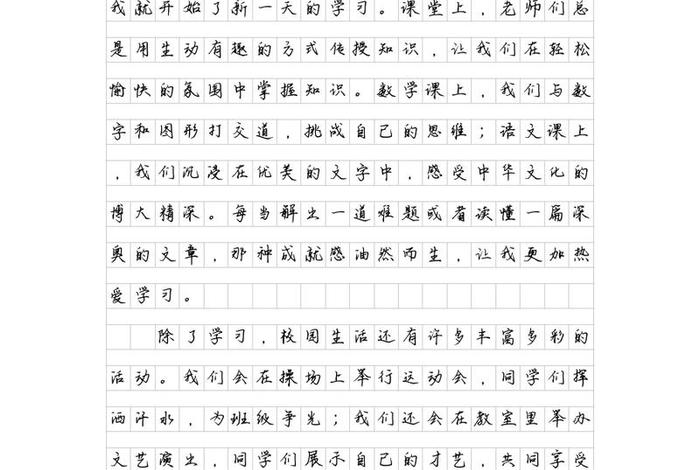 我就开始了新一天的学习。课堂上，老师们总
是用生动有趣的方式传授知识，让我们在轻松
愉快的氛围中掌握知识。数学课上，我们与数
字和图形打交道，挑战自己的思维；语文课上
，我们沉浸在优美的文字中，感受中华文化的
博大精深。每当解出一道难题或者读懂一篇深
奥的文章，那种成就感油然而生，让我更加热
爱学习。
除了学习，校园生活还有许多丰富多彩的
活动。我们会在操场上举行运动会，同学们挥
洒汗水，为班级争光；我们还会在教室里举办
文艺演出，同学们展示自己的才艺，共同享受